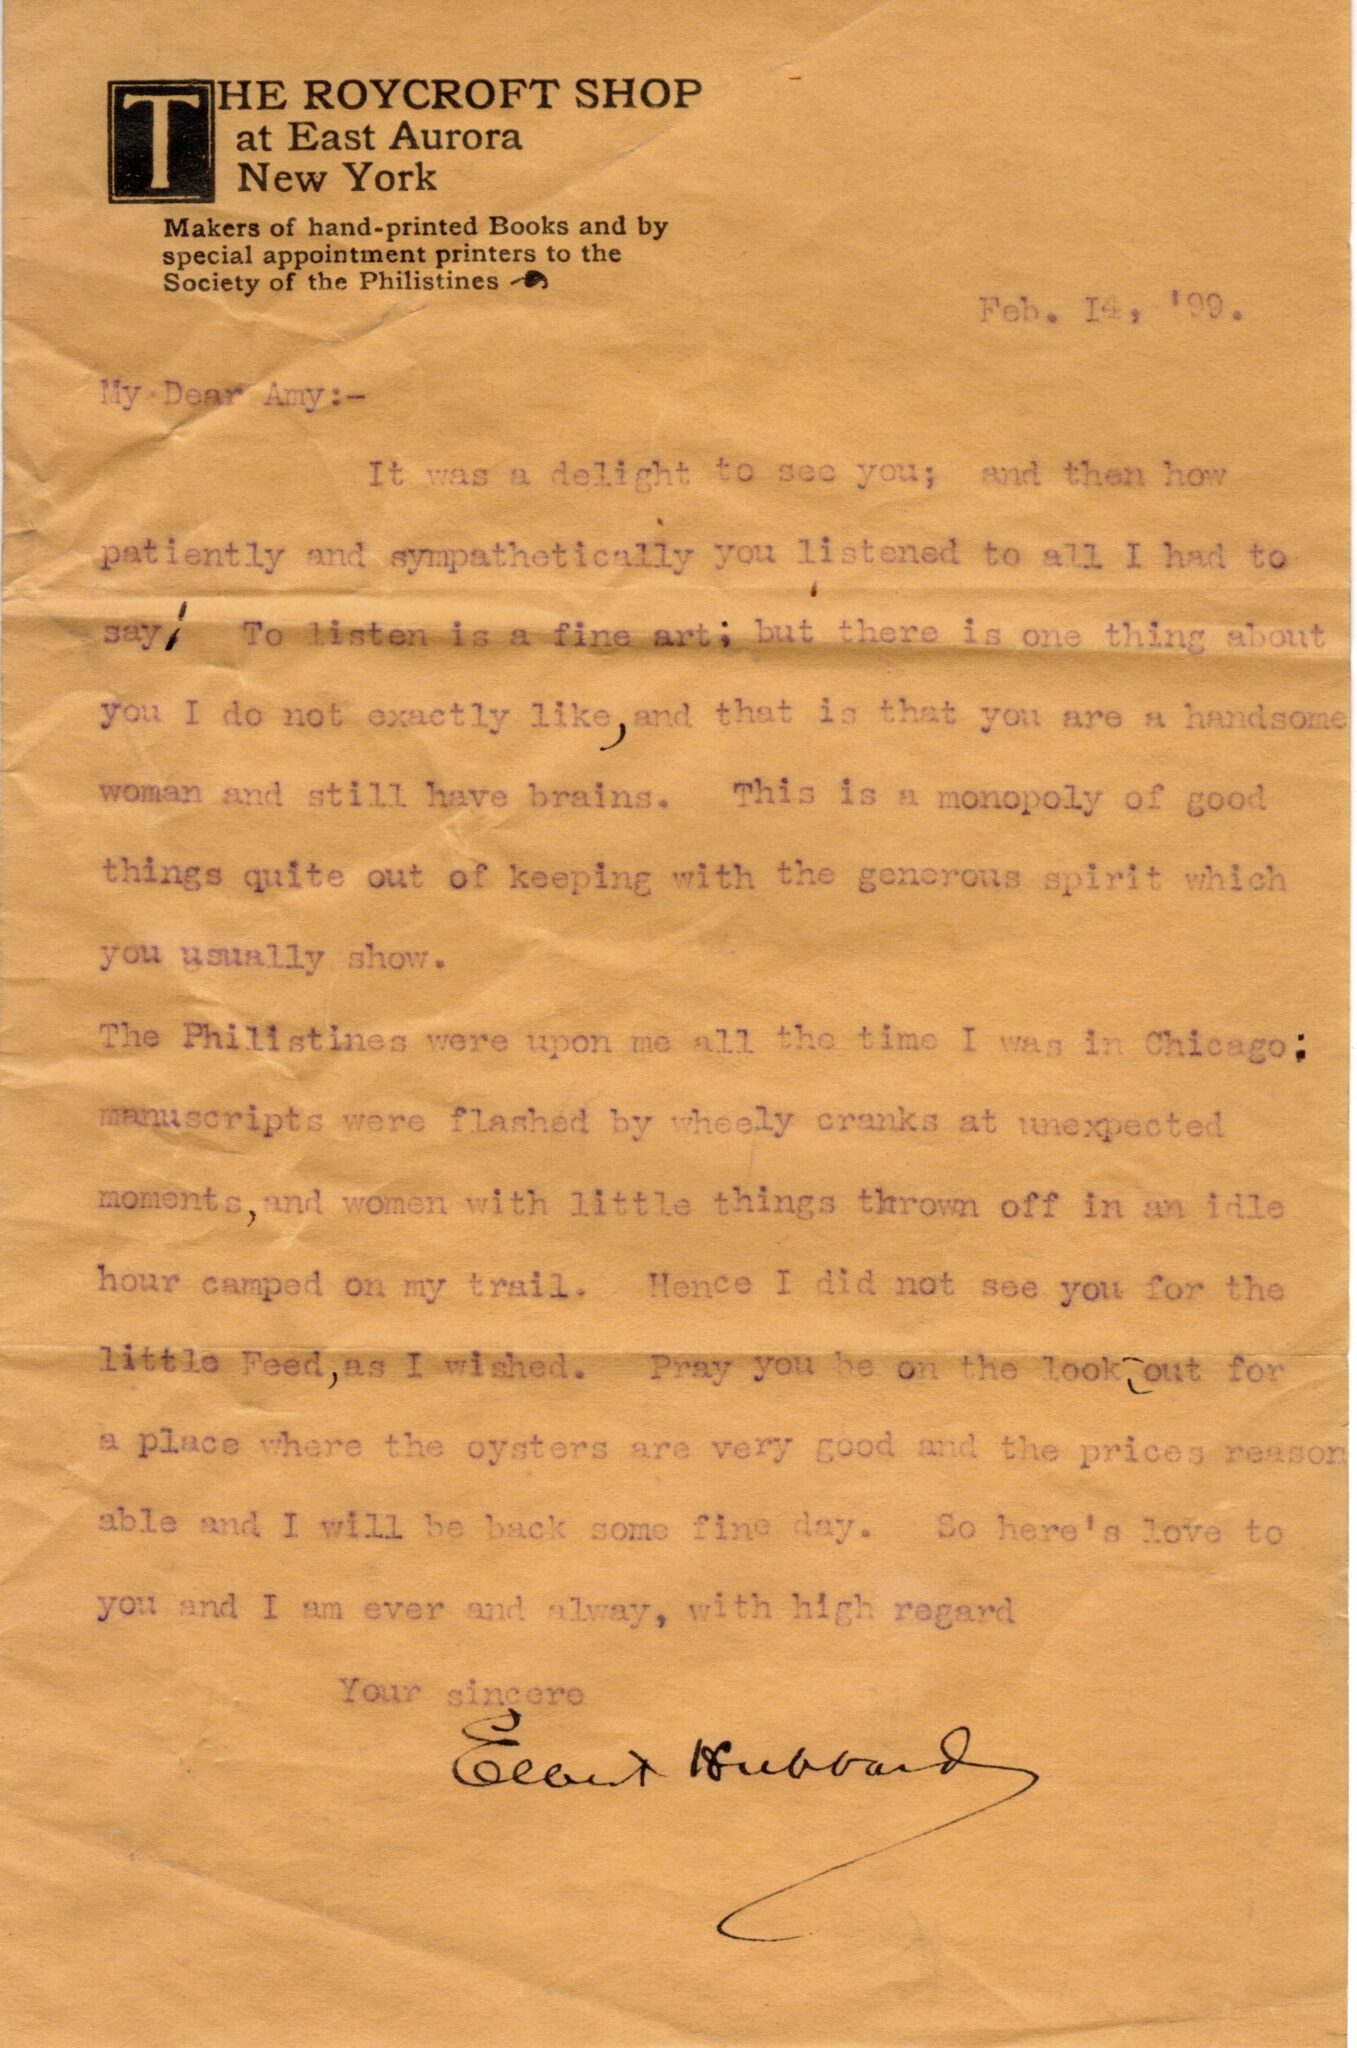 THE ROYCROFT SHOP
at East Aurora
New York
Makers of hand-printed Books and by
special appointment printers to the
Society of the Philistines
Feb. 14, '99.
My Dear Amy:-
It was a delight to see you; and then how
patiently and sympathetically you listened to all I had to
say! To listen is a fine art; but there is one thing about
you I do not exactly like, and that is that you are a handsome
woman and still have brains. This is a monopoly of good
things quite out of keeping with the generous spirit which
you usually show.
The Philistines were upon me all the time I was in Chicago;
manuscripts were flashed by wheely cranks at unexpected
moments, and women with little things thrown off in an idle
hour camped on my trail. Hence I did not see you for the
little Feed, as I wished. Pray you be on the look out for
a place where the oysters are very good and the prices reason
able and I will be back some fine day. So here's love to
you and I am ever and alway, with high regard
Your sincere
Elbert Hubbard